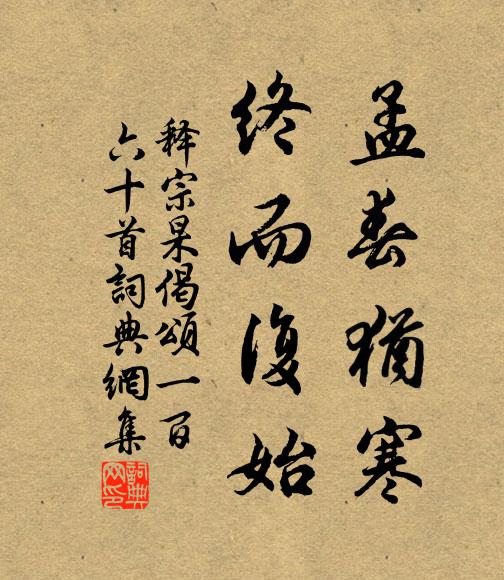 孟春猶寒
終而復始
释宗杲偈頌一百
六十首詞典網集
詞典
网印